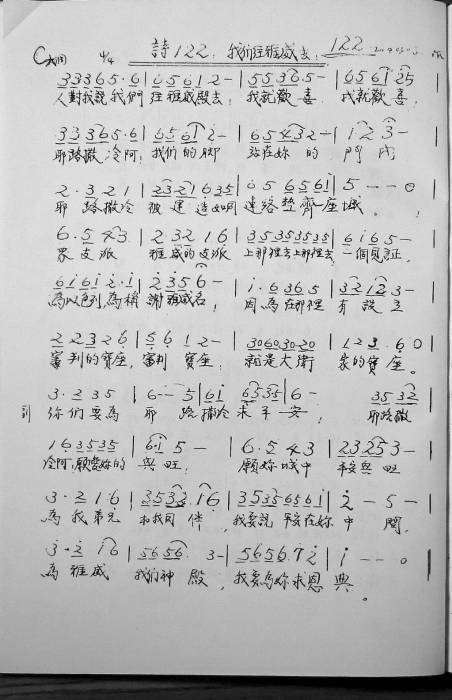 C大調 4/4 詩122: 我们往雅威去: 122
3 3 3 6 5·6 | 6 5 6 1 2 - | 5 5 3 6 5 - | 6 5 6 1 2 5
人對我說我們 往雅威殿去, 我就歡喜 我就歡喜,
3 3 3 6 5·6 | 6 5 6 1 2 - | 6 5 4 3 2 - | 1 2 3 -
耶路撒冷阿, 我们的脚 站在妳的 門内
2·3 2 1 | 2 3 2 1 6 3 5 | 6 5 6 5 6 1 | 5 - - 0
耶路撒冷 被建造如同 連络整齊一座城。
6·5 4 3 | 2 3 2 1 6 | 3 5 3 5 3 5 3 5 | 6 1 6 5 -
眾支派 雅威的支派 上那裡去上那裡去, 一個見証,
6 1 6 1 2·1 | 2 3 5 6 - | 1·6 3 6 5 | 3 2 1 2 3 -
為以色列,為稱 謝雅威名, 因為在那裡 有設立
2 2 3 2 6 | 5 6 1 2 - | 3 0 6 0 3 0 2 0 | 1 2 3·6 0
審判的寶座, 審判寶座: 就是大衛 家的寶座。
3·2 3 5 | 6 - - 5 | 6 1 6 5 3 5 | 6 - 3 5 3 2
你們要為 耶路撒冷求平安, 耶路撒
1 6 3 5 3 5 | 6 1 5 - | 6·5 4 3 | 2 3 2 5 3 -
冷阿,願愛妳的 興旺, 願妳城中 平安興旺
3·2 1 6 | 3 5 3 2 1 6 | 3 5 3 5 6 5 6 1 | 2 - 5 -
為我弟兄 和我同伴, 我要說平安在妳中間,
3·2 1 6 | 5 6 5 6 3 - | 5 6 5 6·7 2 | 1 - - 0
為雅威 我们神殿, 我要為妳求恩典。